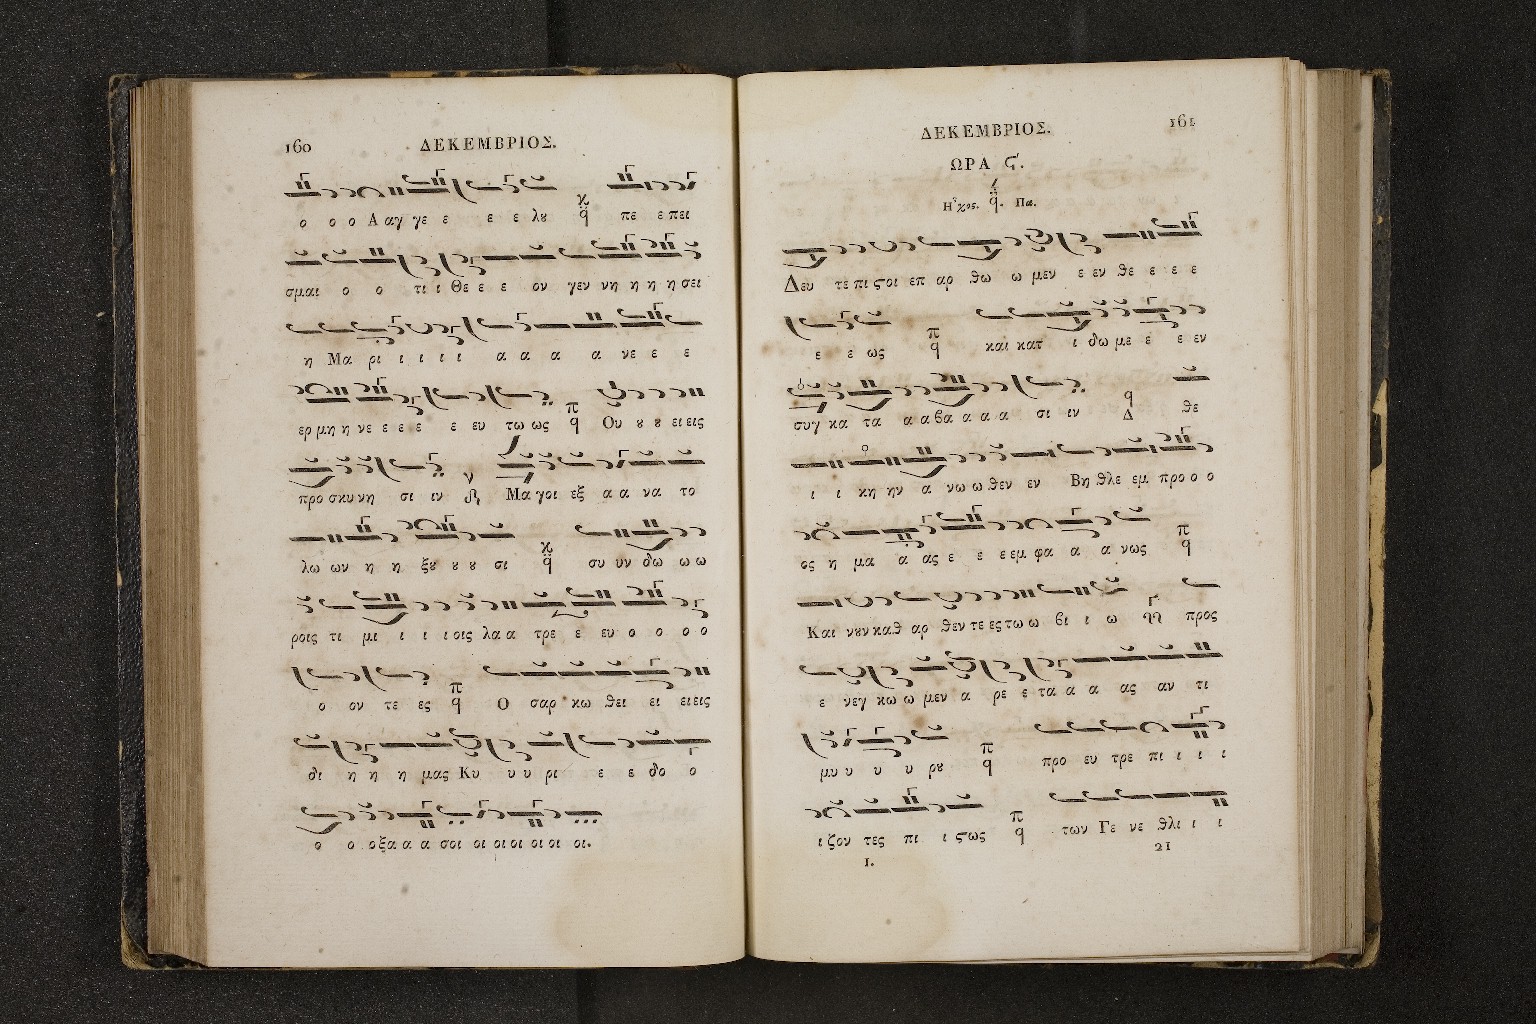 160 ΔΕΚΕΜΒΡΙΟΣ.
ο ο ο Α αγ γε ε ε ε λȣ πε ε πει
σμαι ο ο τι ι Θε ε ε ον γεν νη η η η σει
η Μα ρι ι ι ι ι α α α α νε ε ε
ερ μη η νε ε ε ε ε ευ τω ως Ου ȣ ȣ ει εις
προ σκυ νη σι ιν Μα γοι εξ α α να το
λω ων η η ξȣ ȣ ȣ σι συ υν δω ω ω
ροις τι μι ι ι ι οις λα α τρε ε ευ ο ο ο ο
ο ον τε ες Ο σαρ κω θει ει ει εις
δι η η η μας Κυ υ υ ρι ε ε δο ο
ο ο οξα α α σοι οι οι οι οι οι οι.
ΔΕΚΕΜΒΡΙΟΣ. 161
ΩΡΑ Ϛ΄.
Ηχος. Πα.
Δευ τε πι ϛοι επ αρ θω ω μεν ε εν θε ε ε ε
ε ε ως και κατ ι δω με ε ε εν
συγ κα τα α α βα α α α σι ιν Δ θε
ι ι κη ην α νω ω θεν εν Βη θλε εμ προ ο ο
ος η μα α ας ε ε ε εμ φα α α νως
Και νȣν καθ αρ θεν τε ες τω ω βι ι ω προς
ε νεγ κω ω μεν α ρε ε τα α α ας αν τι
μυ υ υ υ ρȣ προ ευ τρε πι ι ι ι
ι ζον τες πι ι ϛως των Γε νε θλι ι ι
1. 21